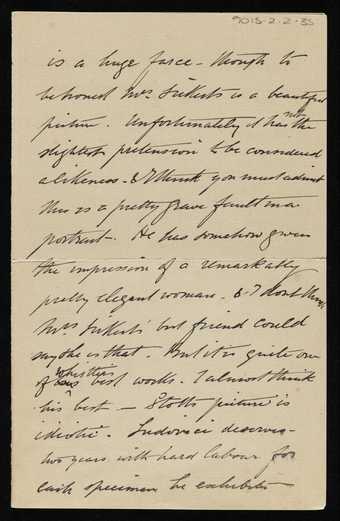 9015-2-2-35
is a huge farce - though to
be honest Mrs. Sickerts is a beautiful
picture. Unfortunately it has not the
slightest pretension to be considered
a likeness - & I think you must admit
this is a pretty grave fault in a
portrait -. He has somehow given
the impression of a remarkably
pretty elegant woman. & I don't think
Mrs Sickerts best friend could
say she is that. But it is quite one
of Whistlers best works. I almost think
his best — Stotts picture is
idiotic. Ludovici deserves
two years with hard labour for
each specimen he exhibits